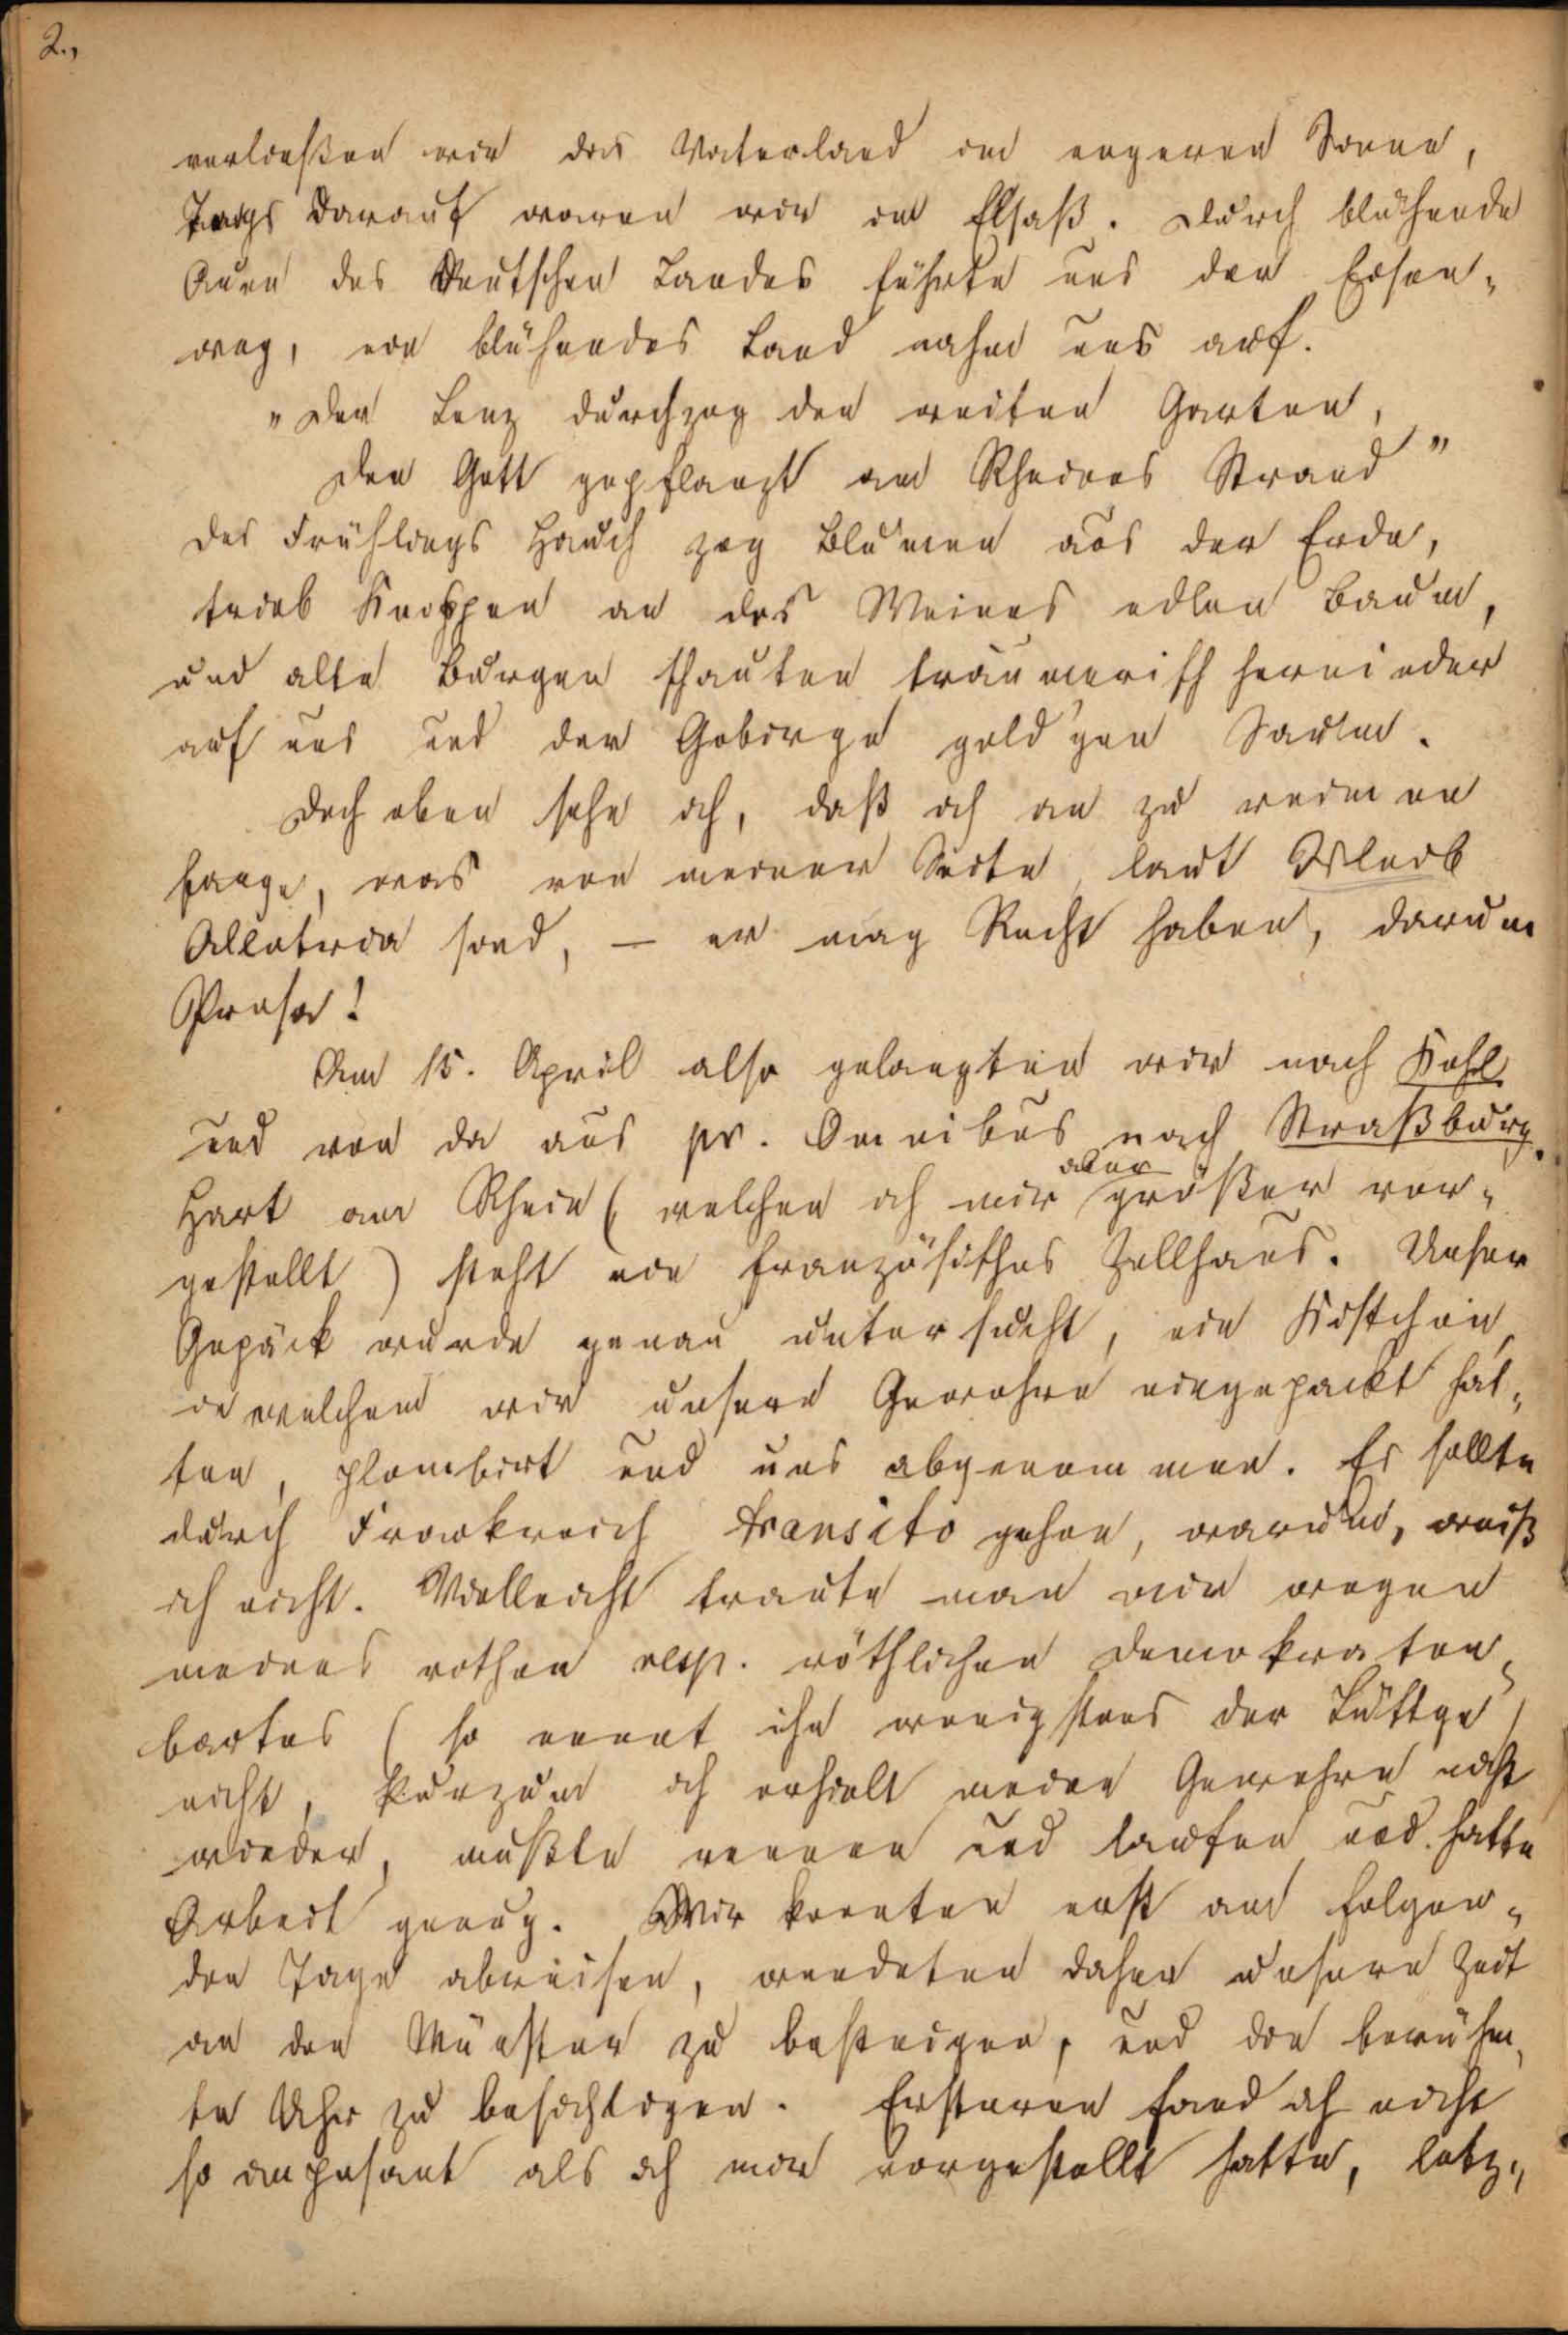 2.,
verließen wir das Vaterland im engeren Sinne,
Tags darauf waren wir im Elsaß. Durch blühende
Auen des Deutschen Landes führte uns der Eisen-
weg, ein blühendes Land nahm uns auf.
„Der Lenz durchzog den weiten Garten,
Den Gott gepflanzt am Rheines Strand"
Des Frühlings Hauch zog Blumen aus der Erde,
trieb Knospen an des Weines edlen Baum,
und alte Burgen schauten träumerisch hernieder
auf uns und der Gebirge gold'gen Saum.
Doch eben sehe ich, daß ich an zu reimen
fange, was von meiner Seite, laut
Allotria sind, — er mag Recht haben, darum
Prosa!
Am 15. April also gelangten wir nach Kehl
und von da aus pr. Omnibus nach Straßburg.
Hart am Rhein (welchen ich mir aber größer vor-
gestellt) steht ein französisches Zollhaus. Unser
Gepäck wurde genau untersucht, ein Kistchen,
in welchem wir unsere Gewehre eingepackt hat-
ten, plombirt und uns abgenommen. Es sollte
durch Frankreich transito gehen, warum, weiß
ich nicht. Vielleicht traute man mir wegen
meines rothen resp. röthlichen Demokraten-
bartes (so nennt ihn wenigstens der Lüttge)
nicht, kurzum ich erhielt meine Gewehre nicht
wieder, mußte rennen und laufen und hatte
Arbeit genug. Wir konnten erst am folgen-
den Tage abreisen, wendeten daher unsere Zeit
an den Münster zu besteigen, und die berühm-
te Uhr zu besichtigen. Ersteren fand ich nicht
so imposant als ich mir vorgestellt hatte, letz-